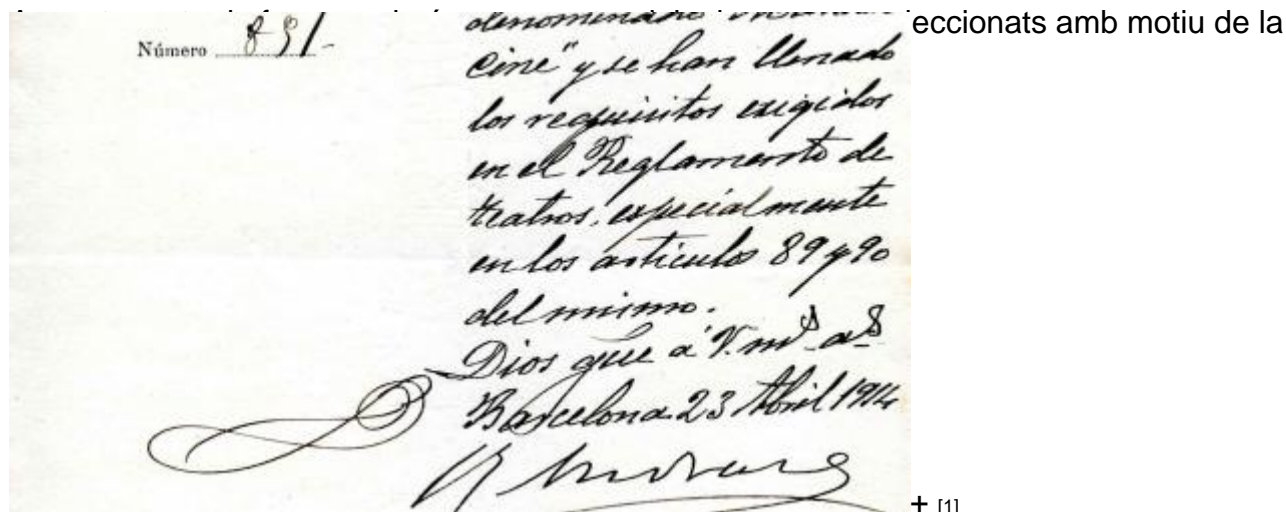 eccionats amb motiu de la
Número 891-
denominado
Cine" y se han llenado
los requisitos exigidos
en el Reglamento de
teatros, especialmente
en los articulos 89 y 90
del mismo.
Dios gue á V. mˢ. aˢ
Barcelona 23 Abril 1914
+ [1]